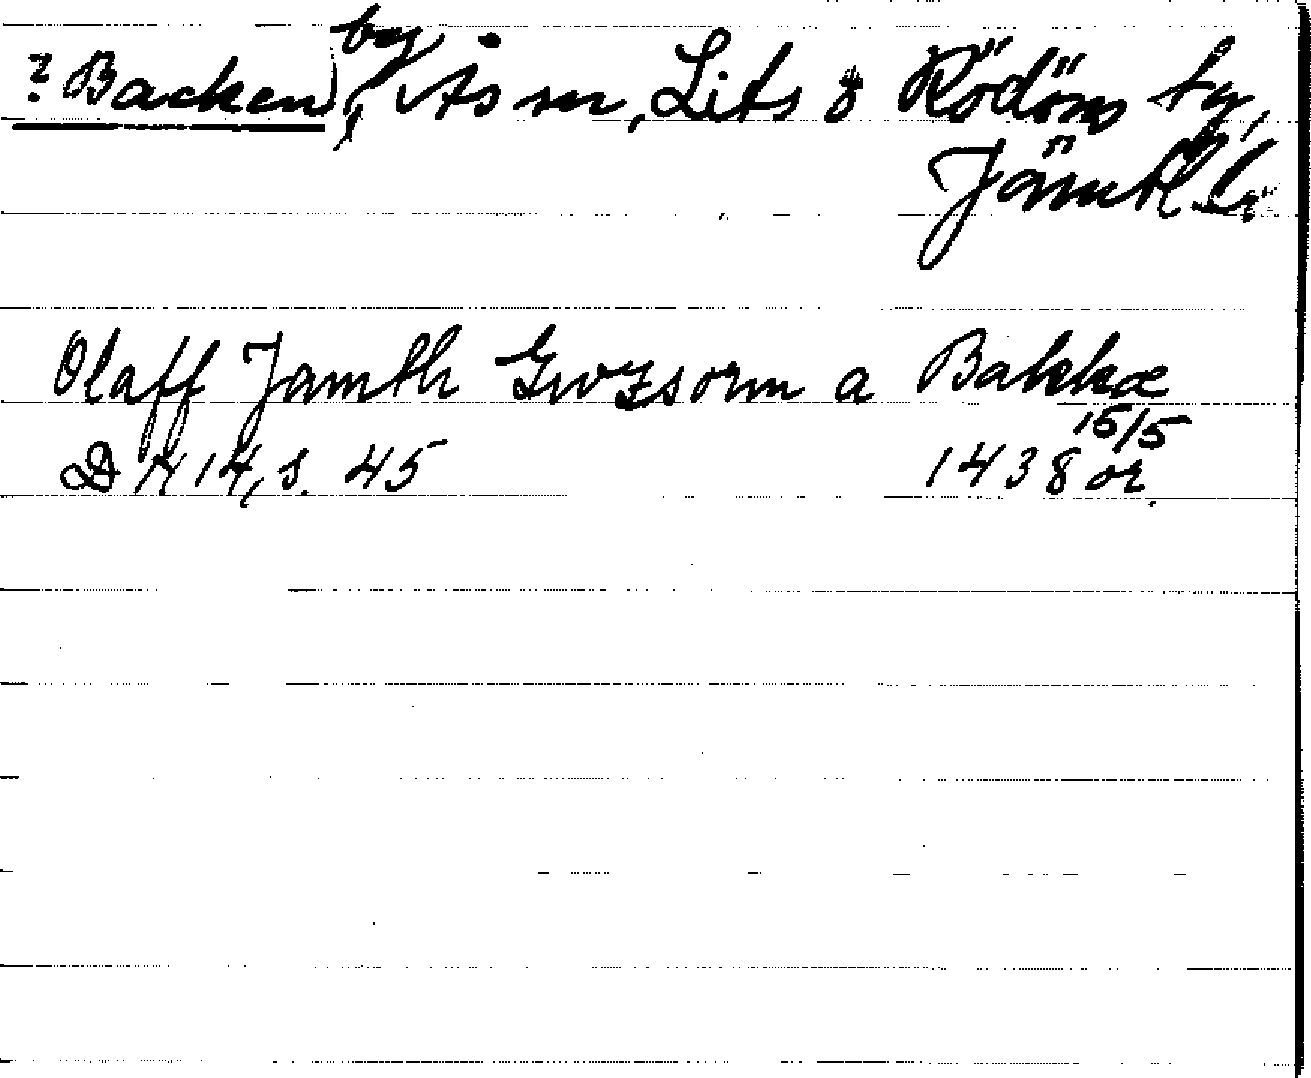 ? Backen, by, Ås sn, Lits & Rödöns tg,
Jämtl.
Olaff Jamth Gwzsorm a Bakkæ
15/5
DN 14, s. 45 1438 or.